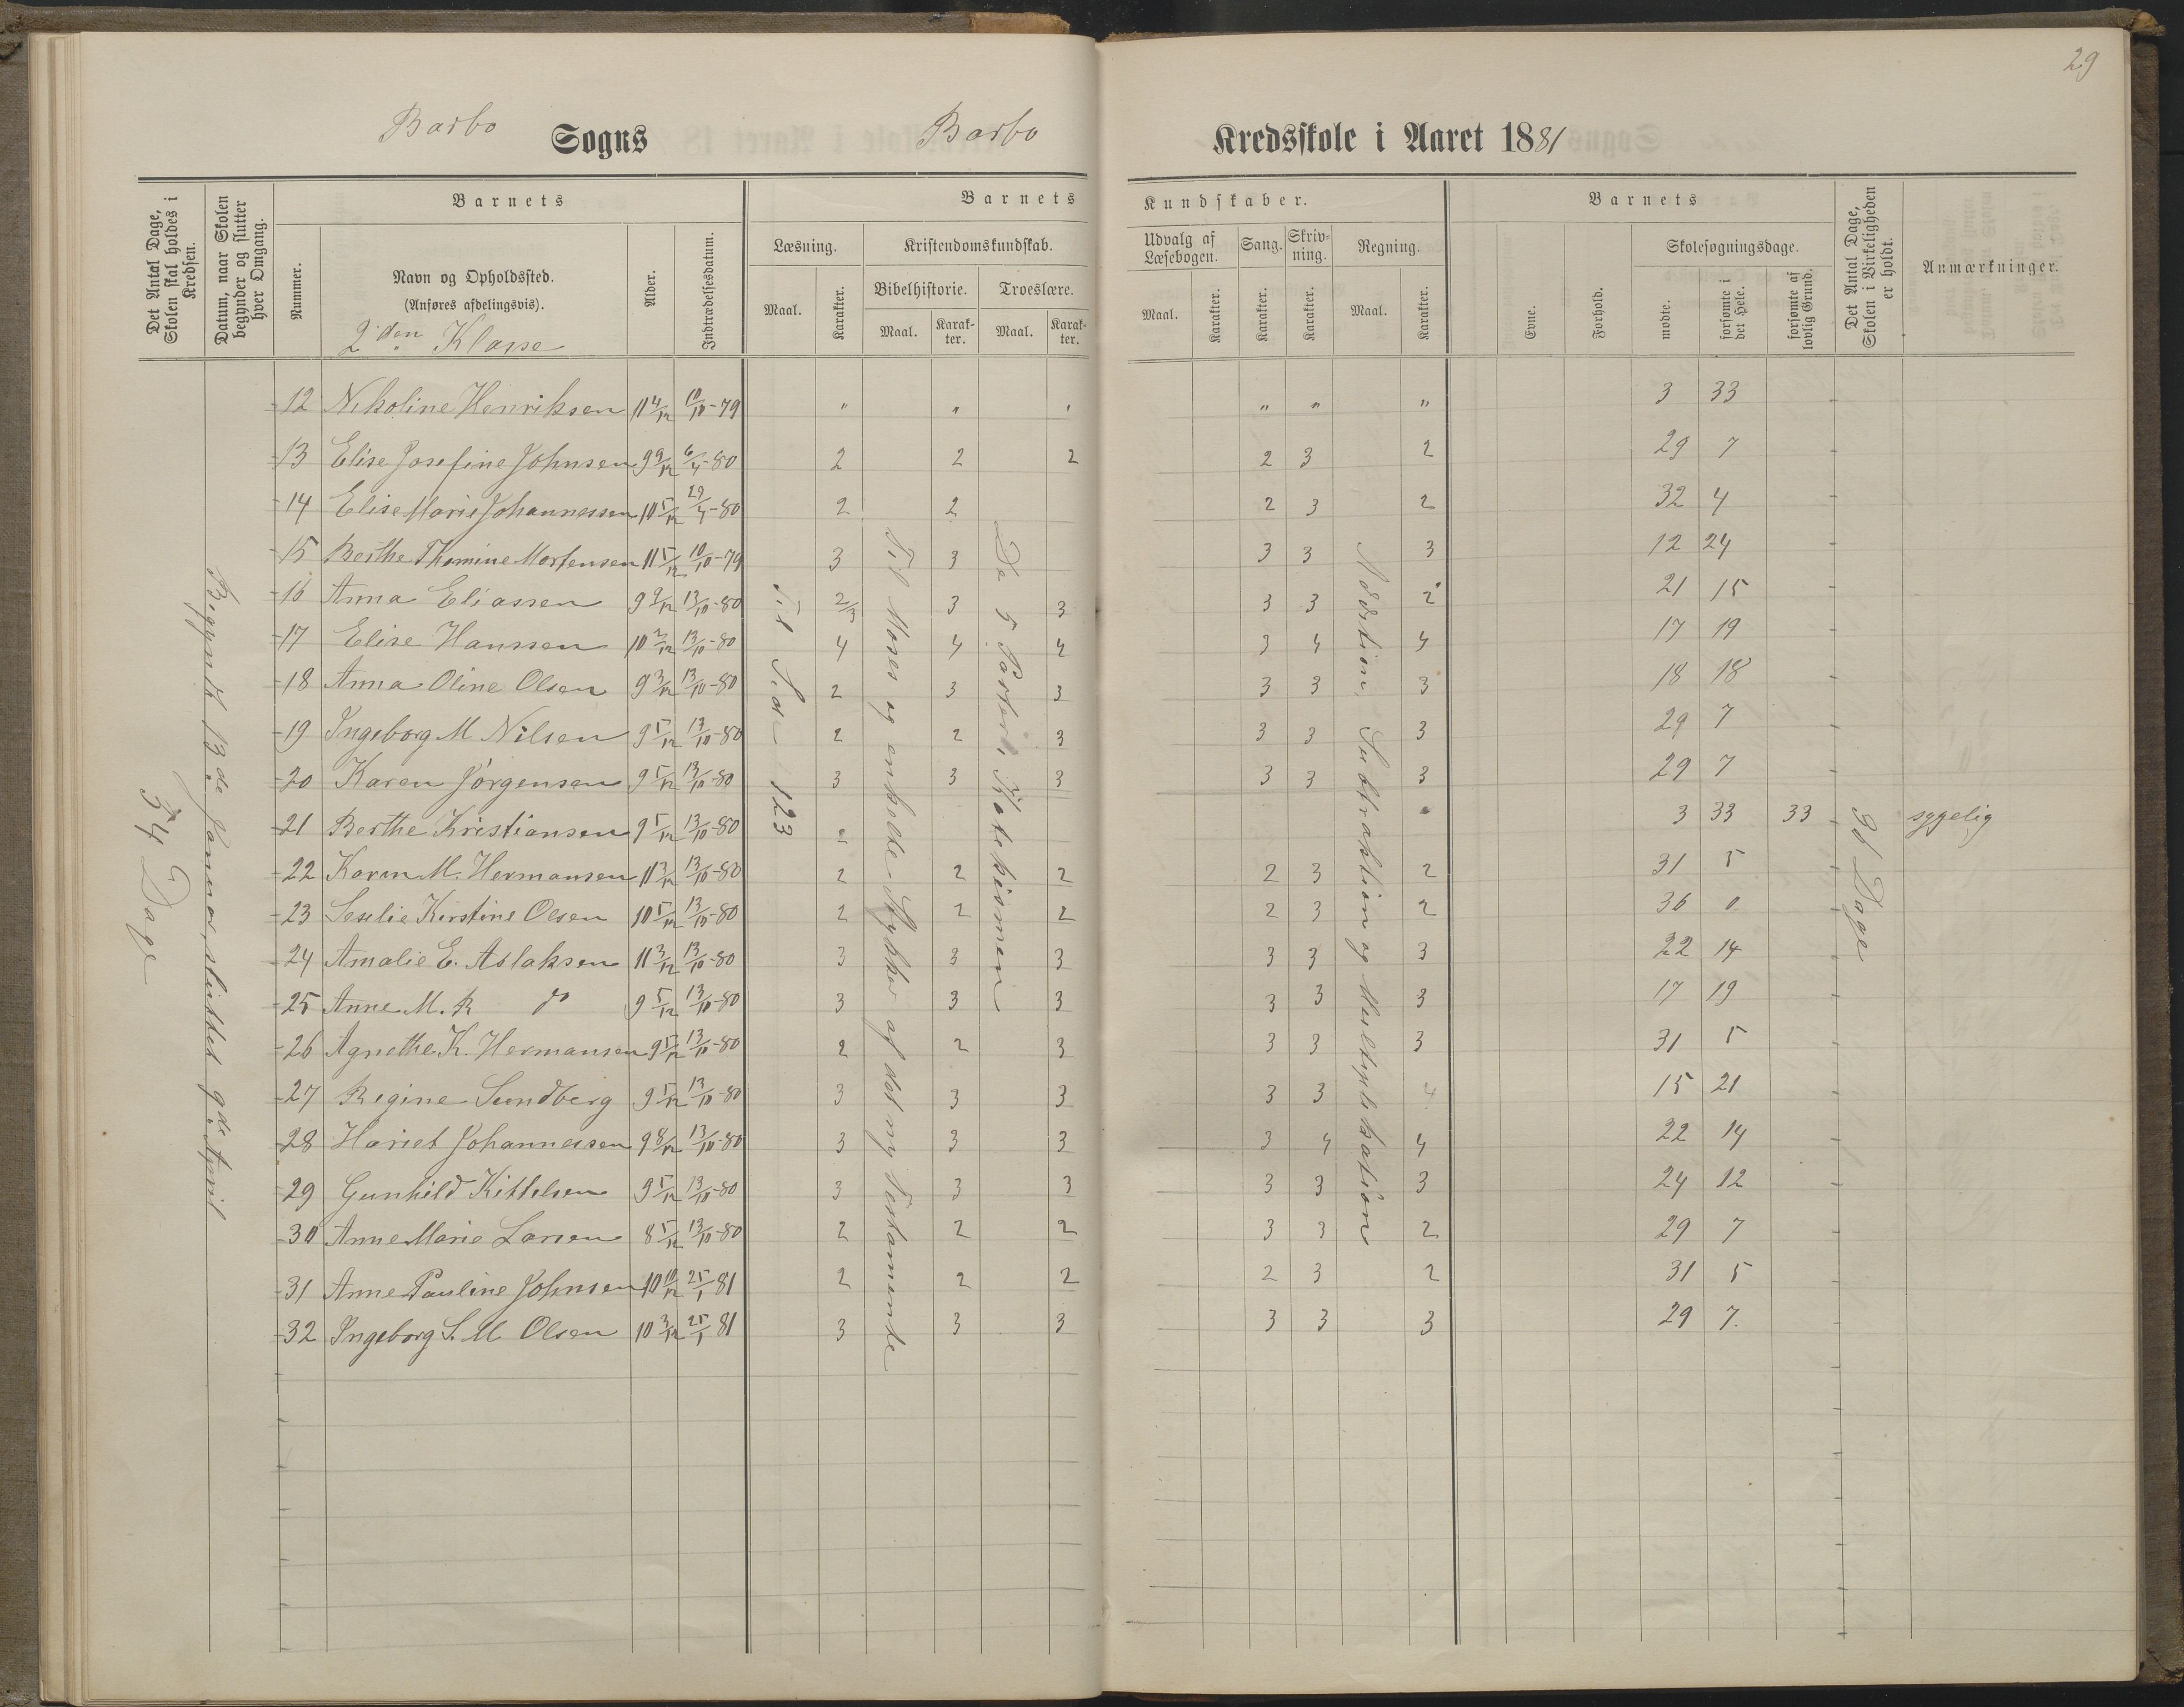 29
Barbo Sogns Barbo Kredsskole i Aaret 1881
Det Antal Dage, Skolen skal holdes i Kredsen.
Datum, naar Skolen begynder og slutter hver Omgang.
Barnets
Nummer.
Navn og Opholdssted.
(Anføres afdelingsvis).
2den Klasse
Alder.
Indtrædelsesdatum.
Barnets Kundskaber.
Læsning.
Maal.
Karakter.
Kristendomskundskab.
Bibelhistorie.
Maal.
Karakter.
Troeslære.
Maal.
Karakter.
Udvalg af Læsebogen.
Maal.
Karakter.
Sang.
Karakter.
Skrivning.
Karakter.
Regning.
Maal.
Karakter.
Barnets
Evne.
Forhold.
Skolesøgningsdage.
mødte.
forsømte i det Hele.
forsømte af lovlig Grund.
Det Antal Dage, Skolen i Virkeligheden er holdt.
Anmærkninger.
34 Dage
Begyndt 13de Januar, sluttet 9de April
Til Side 123
Til Moses og enkelte Stykker af det ny Testamente
De 5 Parter i Katekismen
Addition, Subtraktion og Multiplikation
36 Dage
12 Nikoline Henriksen 11 4/12 10/10-79 " " " " " " 3 33
13 Elise Josefine Johnsen 9 9/12 6/4-80 2 2 2 2 3 2 29 7
14 Elise Marie Johannessen 10 5/12 29/4-80 2 2 2 3 2 32 4
15 Berthe Thomine Mortensen 11 5/12 10/10-79 3 3 3 3 3 12 24
16 Anna Eliassen 9 9/12 13/10-80 2/3 3 3 3 3 2 21 15
17 Elise Hanssen 10 2/12 13/10-80 4 4 4 3 4 4 17 19
18 Anna Oline Olsen 9 3/12 13/10-80 2 3 3 3 3 3 18 18
19 Ingeborg M Nilsen 9 5/12 13/10-80 2 2 3 3 3 3 29 7
20 Karen Jörgensen 9 5/12 13/10-80 3 3 3 3 3 3 29 7
21 Berthe Kristiansen 9 5/12 13/10-80 3 33 33 sygelig
22 Karen M. Hermansen 11 3/12 13/10-80 2 2 2 2 3 2 31 5
23 Seselie Kirstine Olsen 10 5/12 13/10-80 2 2 2 2 3 2 36 0
24 Amalie E. Aslaksen 11 3/12 13/10-80 3 3 3 3 3 3 22 14
25 Anne M. R do 9 5/12 13/10-80 3 3 3 3 3 3 17 19
26 Agnethe K. Hermansen 9 5/12 13/10-80 2 2 3 3 3 3 31 5
27 Regine Sundberg 9 5/12 13/10-80 3 3 3 3 3 4 15 21
28 Hariet Johannessen 9 8/12 13/10-80 3 3 3 3 4 4 22 14
29 Gunhild Kittelsen 9 5/12 13/10-80 3 3 3 3 3 3 24 12
30 Anne Marie Larsen 8 5/12 13/10-80 2 2 2 3 3 2 29 7
31 Anne Pauline Johnsen 10 10/12 25/1 81 2 2 2 2 3 2 31 5
32 Ingeborg S. M Olsen 10 3/12 25/1 81 3 3 3 3 3 3 29 7.